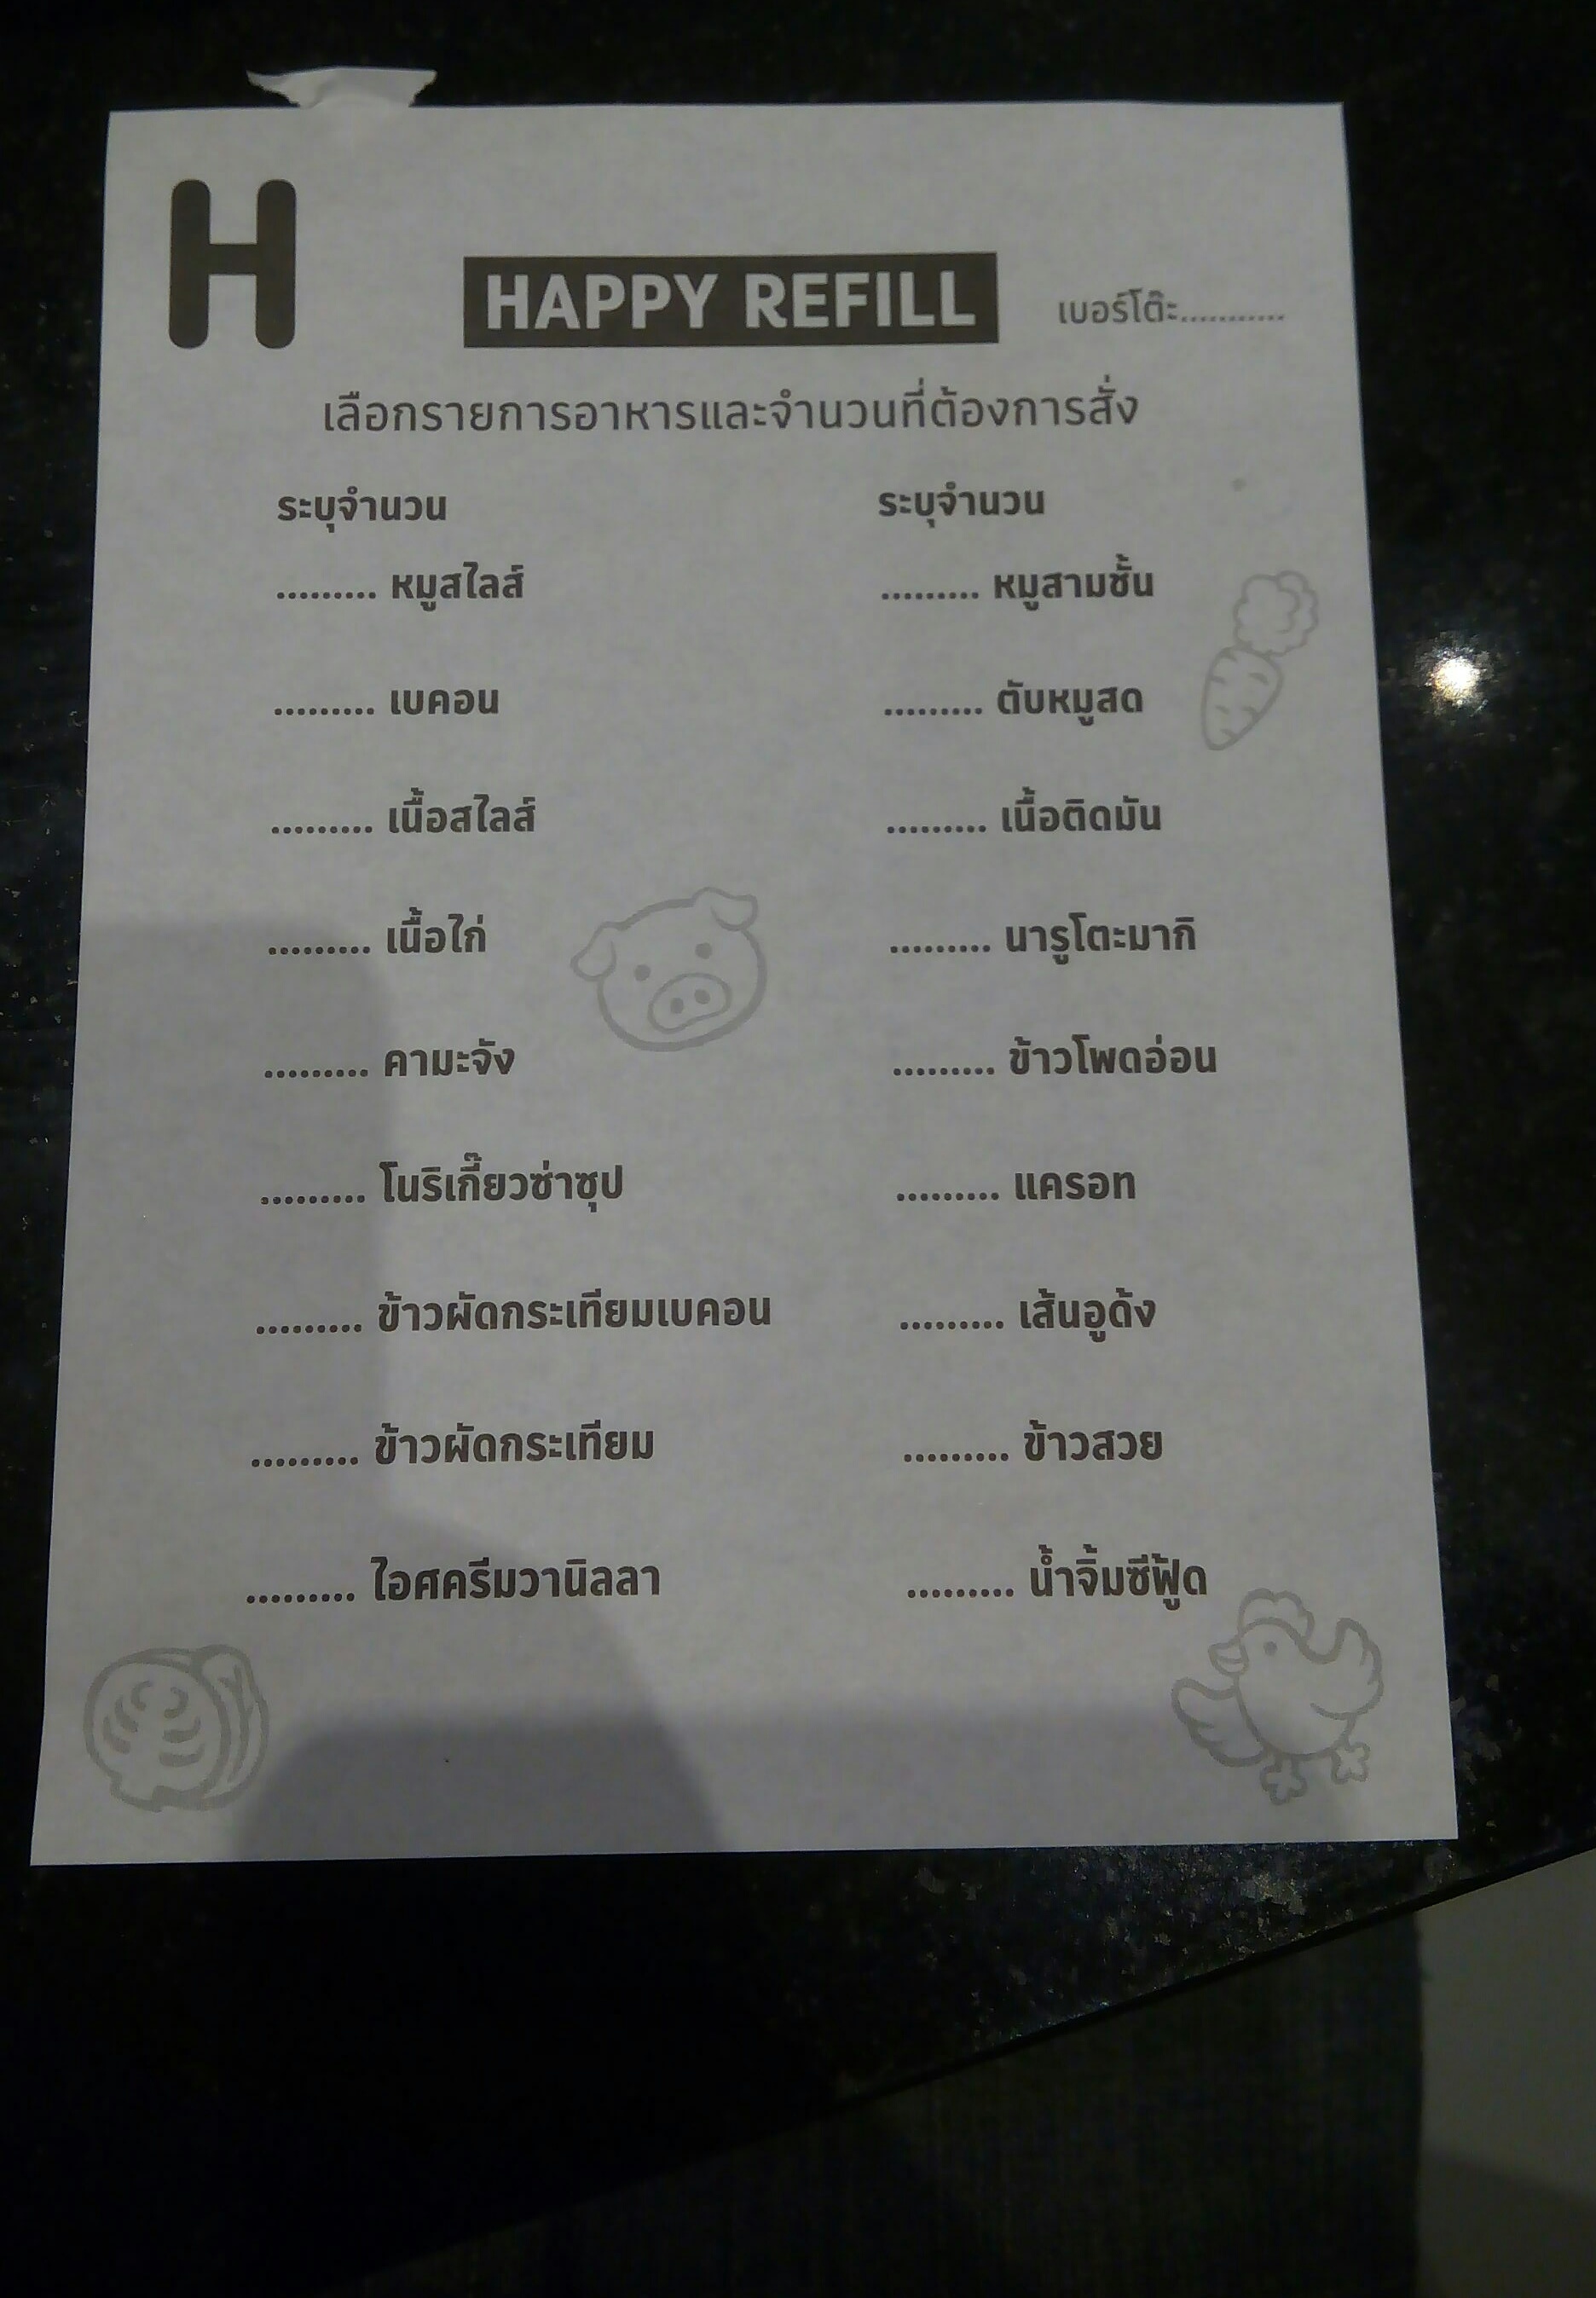 H
HAPPY REFILL
เบอร์โต๊ะ...........
เลือกรายการอาหารและจำนวนที่ต้องการสั่ง
ระบุจำนวน
......... หมูสไลส์
......... เบคอน
......... เนื้อสไลส์
......... เนื้อไก่
......... คามะจัง
......... โนริเกี๊ยวซ่าซุป
......... ข้าวผัดกระเทียมเบคอน
......... ข้าวผัดกระเทียม
......... ไอศครีมวานิลลา
ระบุจำนวน
......... หมูสามชั้น
......... ตับหมูสด
......... เนื้อติดมัน
......... นารูโตะมากิ
......... ข้าวโพดอ่อน
......... แครอท
......... เส้นอูด้ง
......... ข้าวสวย
......... น้ำจิ้มซีฟู้ด